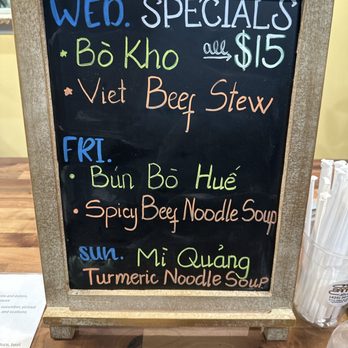 WED. SPECIALS
• Bò Kho all $15
• Viet Beef Stew
FRI.
• Bún Bò Huế
• Spicy Beef Noodle Soup
SUN. Mì Quảng
Turmeric Noodle Soup